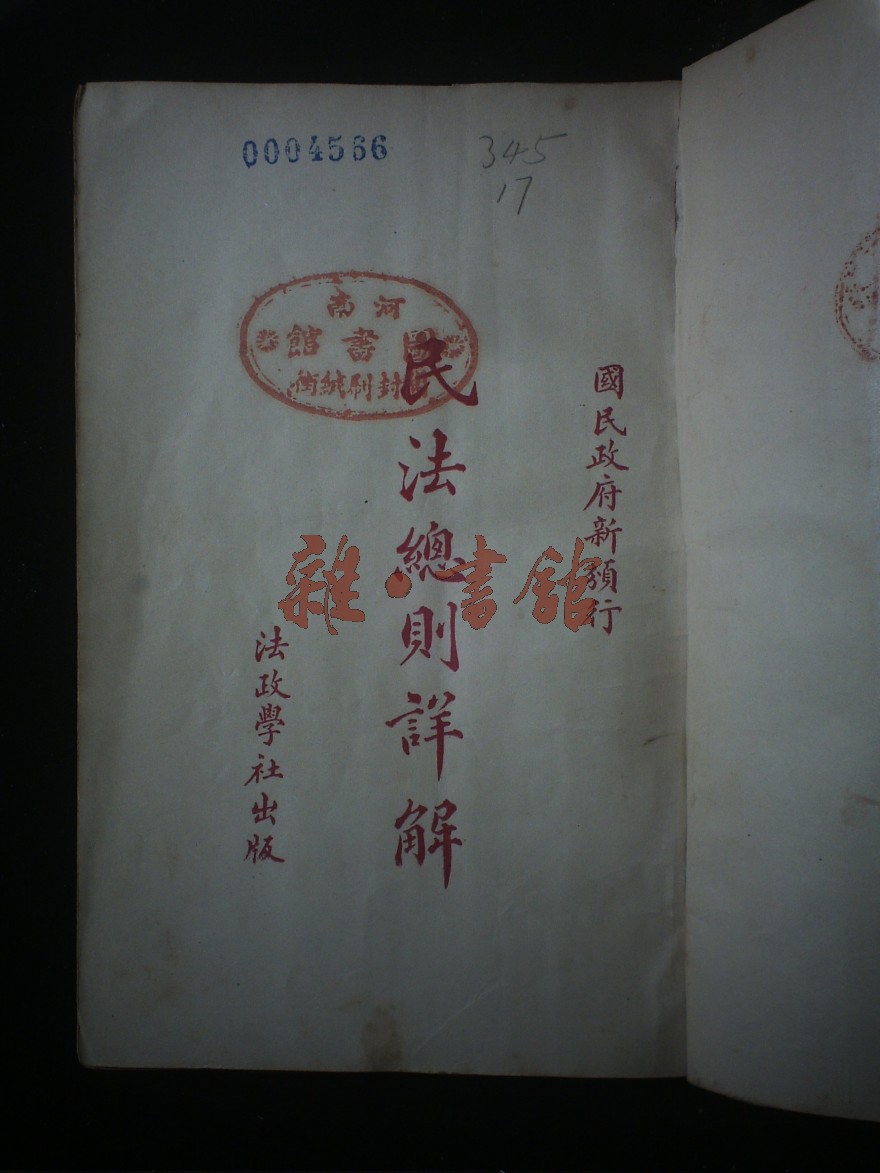 0004566
345
17
河南
圖書館
封刷絨街
國民政府新頒行
民法總則詳解
法政學社出版
雜·書館